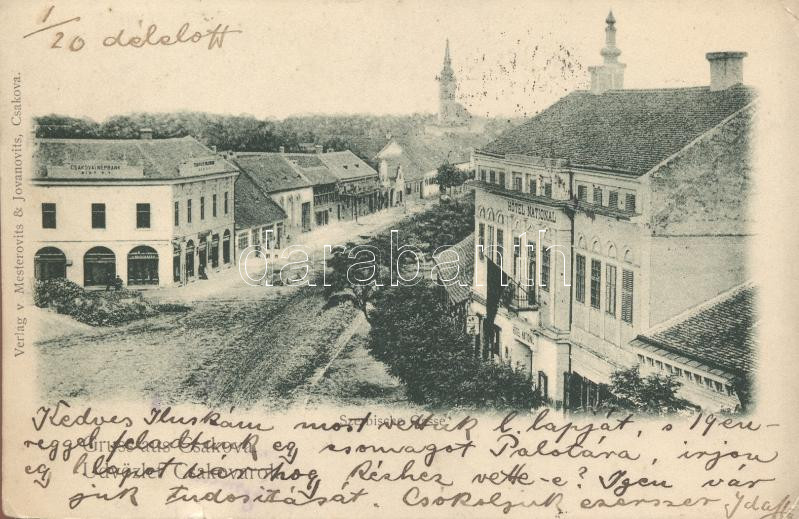 1/20 délelőtt
Verlag v Mesterovits & Jovanovits, Csakova.
CSAKOVAI NÉPBANK
HÔTEL NATIONAL
darabanth.com
Szerbische Gasse
Gruss aus Csakova
Üdvözlet Csakováról
Kedves Iluskám most vettük b. lapját, s 19 én
reggel feladtunk egy csomagot Palotára, irjon
egy lapot azon hogy kézhez vette-e? Igen vár
juk tudositását. Csókoljuk ezerszer Ida